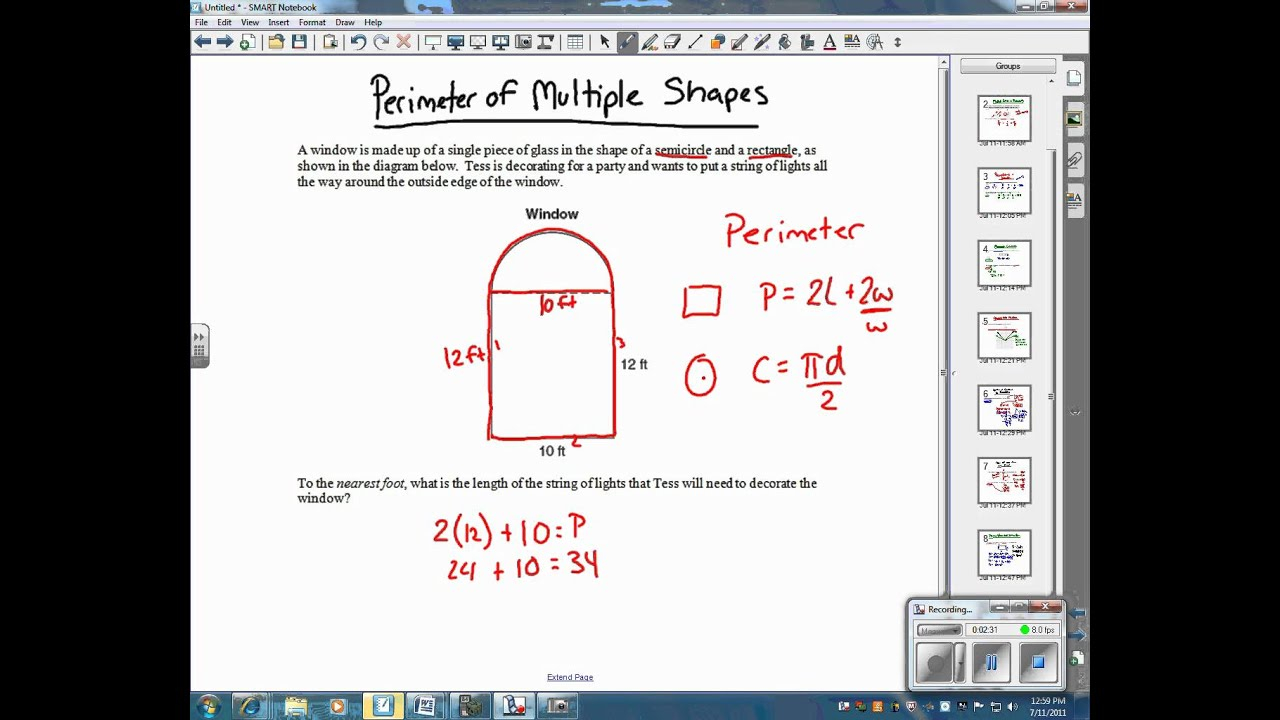 Untitled * - SMART Notebook
File Edit View Insert Format Draw Help
Groups
Perimeter of Multiple Shapes
A window is made up of a single piece of glass in the shape of a semicircle and a rectangle, as
shown in the diagram below. Tess is decorating for a party and wants to put a string of lights all
the way around the outside edge of the window.
Window
Perimeter
10 ft
P = 2L + 2w
w
12 ft 1
3
12 ft
C = πd
2
2
10 ft
To the nearest foot, what is the length of the string of lights that Tess will need to decorate the
window?
2(12) + 10 = P
24 + 10 = 34
Extend Page
2
Jul 11-11:58 AM
3
Jul 11-12:05 PM
4
Jul 11-12:14 PM
5
Jul 11-12:21 PM
6
Jul 11-12:29 PM
7
Jul 11-12:37 PM
8
Jul 11-12:47 PM
Recording...
0:02:31
8.0 fps
12:59 PM
7/11/2011